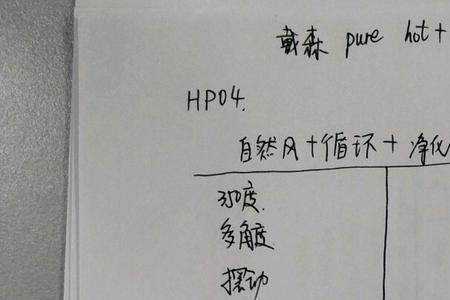 戴森 pure hot+
HP04.
自然风+循环+净化
350度.
多角度
摆动